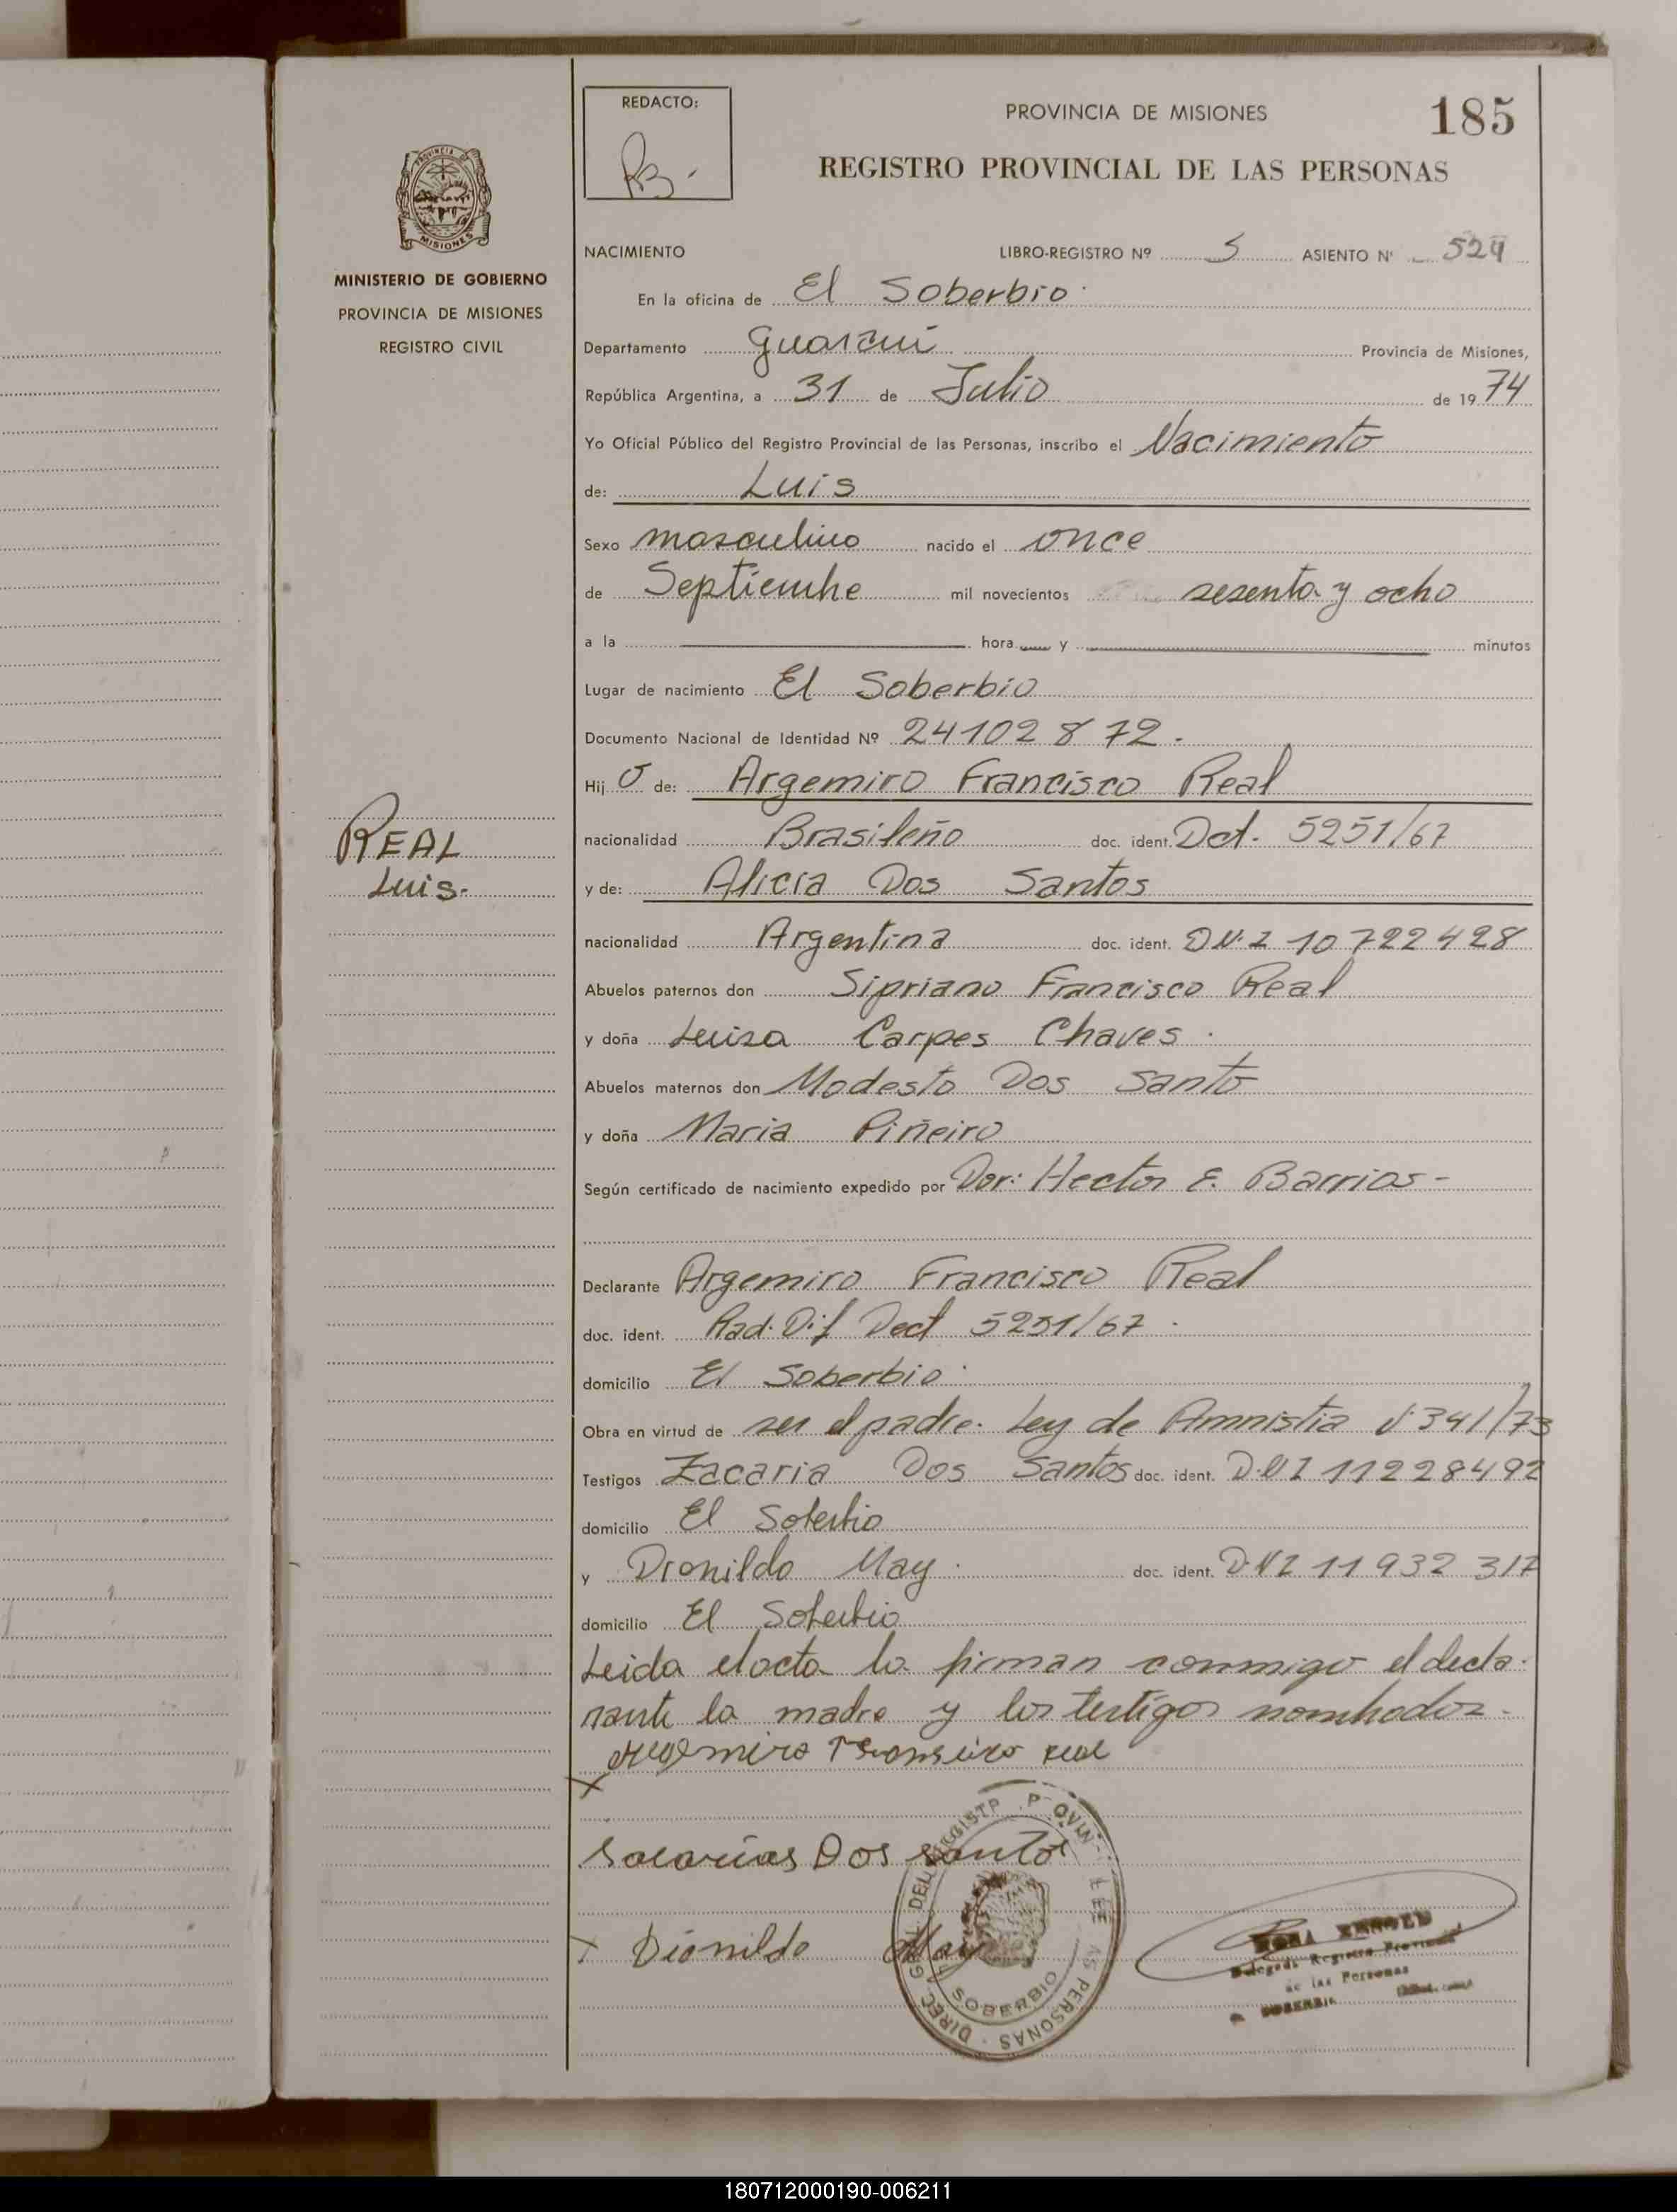 REDACTO:
PROVINCIA DE MISIONES
185
REGISTRO PROVINCIAL DE LAS PERSONAS
PROVINCIA DE
MISIONES
MINISTERIO DE GOBIERNO
PROVINCIA DE MISIONES
REGISTRO CIVIL
NACIMIENTO LIBRO-REGISTRO Nº 5 ASIENTO Nº 524
En la oficina de El Soberbio
Departamento Guaraní Provincia de Misiones,
República Argentina, a 31 de Julio de 1974
Yo Oficial Público del Registro Provincial de las Personas, inscribo el Nacimiento
de: Luis
Sexo masculino nacido el once
de Septiembre mil novecientos sesenta y ocho
a la hora y minutos
Lugar de nacimiento El Soberbio
Documento Nacional de Identidad Nº 24102872.-
Hijo de: Argemiro Francisco Real
nacionalidad Brasileño doc. ident. Dct. 5251/67
REAL
Luis.
y de: Alicia Dos Santos
nacionalidad Argentina doc. ident. DN.I 10722428
Abuelos paternos don Sipriano Francisco Real
y doña Luisa Carpes Chaves.
Abuelos maternos don Modesto Dos Santo
y doña Maria Piñeiro
Según certificado de nacimiento expedido por Dor: Hector E. Barrios-
Declarante Argemiro Francisco Real
doc. ident. Rad. Dif Dect 5251/67.
domicilio El Soberbio
Obra en virtud de ser el padre. Ley de Amnistia N.341/73
Testigos Zacaria Dos Santos doc. ident. D.N I 11228492
domicilio El Soberbio
y Dionildo May. doc. ident. D.N I 11932317
domicilio El Soberbio
Leida el acta la firman conmigo el decla-
rante la madre y los testigos nombrados.
Real
Sacarias Dos Santos
Dionildo May
DIREC. GRAL. DEL REGISTR. PROVIN. DE LAS PERSONAS
SOBERBIO
Delegada Registro Provincial
de las Personas
SOBERBIO
180712000190-006211